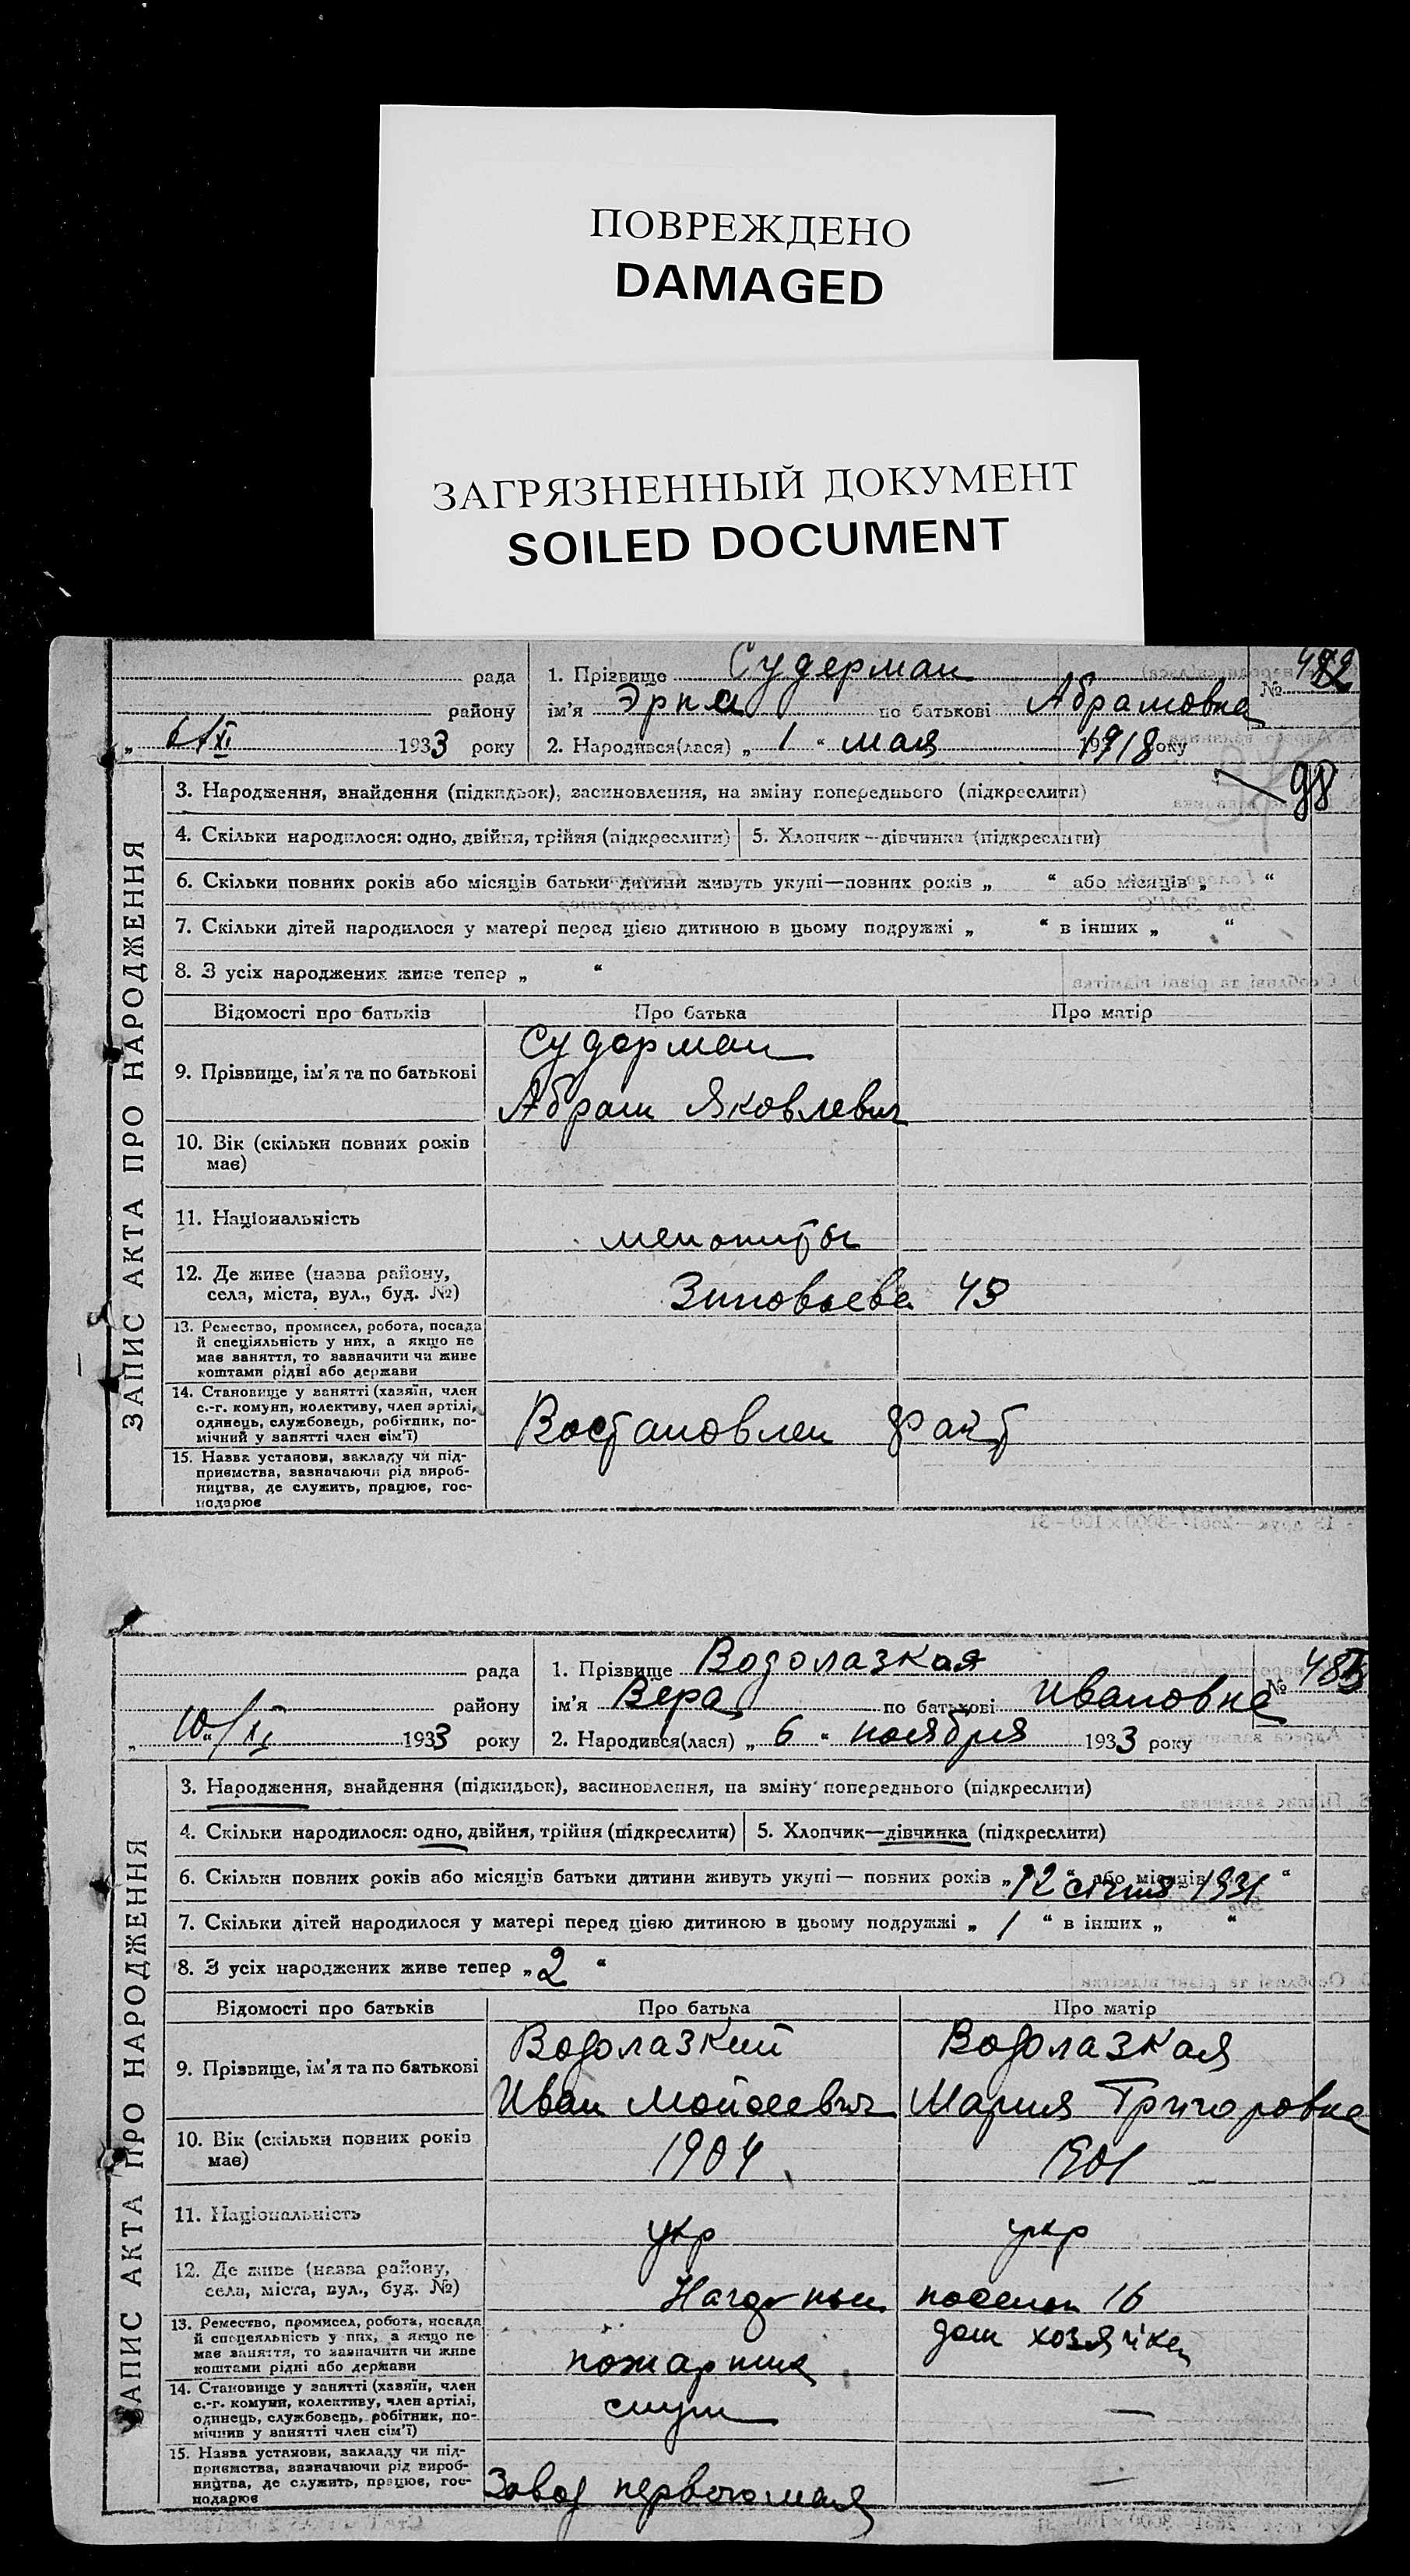 ПОВРЕЖДЕНО
DAMAGED
ЗАГРЯЗНЕННЫЙ ДОКУМЕНТ
SOILED DOCUMENT
рада
району
XI 1933 року
1. Прізвище Судерман
ім'я Эрна по батькові Абрамовна
2. Народився(лася) „ 1 “ мая 1918 року
№ 482
98
ЗАПИС АКТА ПРО НАРОДЖЕННЯ
3. Народження, знайдення (підкидьок), засиновлення, на зміну попереднього (підкреслити)
4. Скільки народилося: одно, двійня, трійня (підкреслити) 5. Хлопчик—дівчинка (підкреслити)
6. Скільки повних років або місяців батьки дитини живуть укупі—повних років „ “ або місяців „ “
7. Скільки дітей народилося у матері перед цією дитиною в цьому подружжі „ “ в інших „ “
8. З усіх народжених живе тепер „ “
Відомості про батьків Про батька Про матір
9. Прізвище, ім'я та по батькові
Судерман
Абрам Яковлевич
10. Вік (скільки повних років
має)
11. Національність
менониты
12. Де живе (назва району,
села, міста, вул., буд. №)
Зиновьева 43
13. Ремество, промисел, робота, посада
й спеціяльність у них, а якщо не
має заняття, то зазначити чи живе
коштами рідні або держави
14. Становище у занятті (хазяїн, член
с.-г. комуни, колективу, член артілі,
одинець, службовець, робітник, по-
мічний у занятті член сім'ї)
Востановлен факт
15. Назва установи, закладу чи під-
приємства, зазначаючи рід вироб-
ництва, де служить, працює, гос-
подарює
рада
району
10/XI 1933 року
1. Прізвище Водолазкая
ім'я Вера по батькові Ивановна
2. Народився(лася) „ 6 “ ноября 1933 року
№ 483
ЗАПИС АКТА ПРО НАРОДЖЕННЯ
3. Народження, знайдення (підкидьок), засиновлення, на зміну попереднього (підкреслити)
4. Скільки народилося: одно, двійня, трійня (підкреслити) 5. Хлопчик—дівчинка (підкреслити)
6. Скільки повних років або місяців батьки дитини живуть укупі— повних років „ 12 “ або місяців січня 1931 “
7. Скільки дітей народилося у матері перед цією дитиною в цьому подружжі „ 1 “ в інших „ “
8. З усіх народжених живе тепер „ 2 “
Відомості про батьків Про батька Про матір
9. Прізвище, ім'я та по батькові
Водолазкий Водолазкая
Иван Мойсеевич Мария Григоровна
10. Вік (скільки повних років
має)
1904 1901
11. Національність
укр укр
12. Де живе (назва району,
села, міста, вул., буд. №)
поселок 16
13. Ремество, промисел, робота, посада
й спецеяльність у них, а якщо не
має заняття, то зазначити чи живе
коштами рідні або держави
пожарник дом хозяйка
14. Становище у занятті (хазяїн, член
с.-г. комуни, колективу, член артілі,
одинець, службовець, робітник, по-
мічнив у занятті член сім'ї)
служ —
15. Назва установи, закладу чи під-
приємства, зазначаючи рід вироб-
ництва, де служить, працює, гос-
подарює
Завод первогомая —